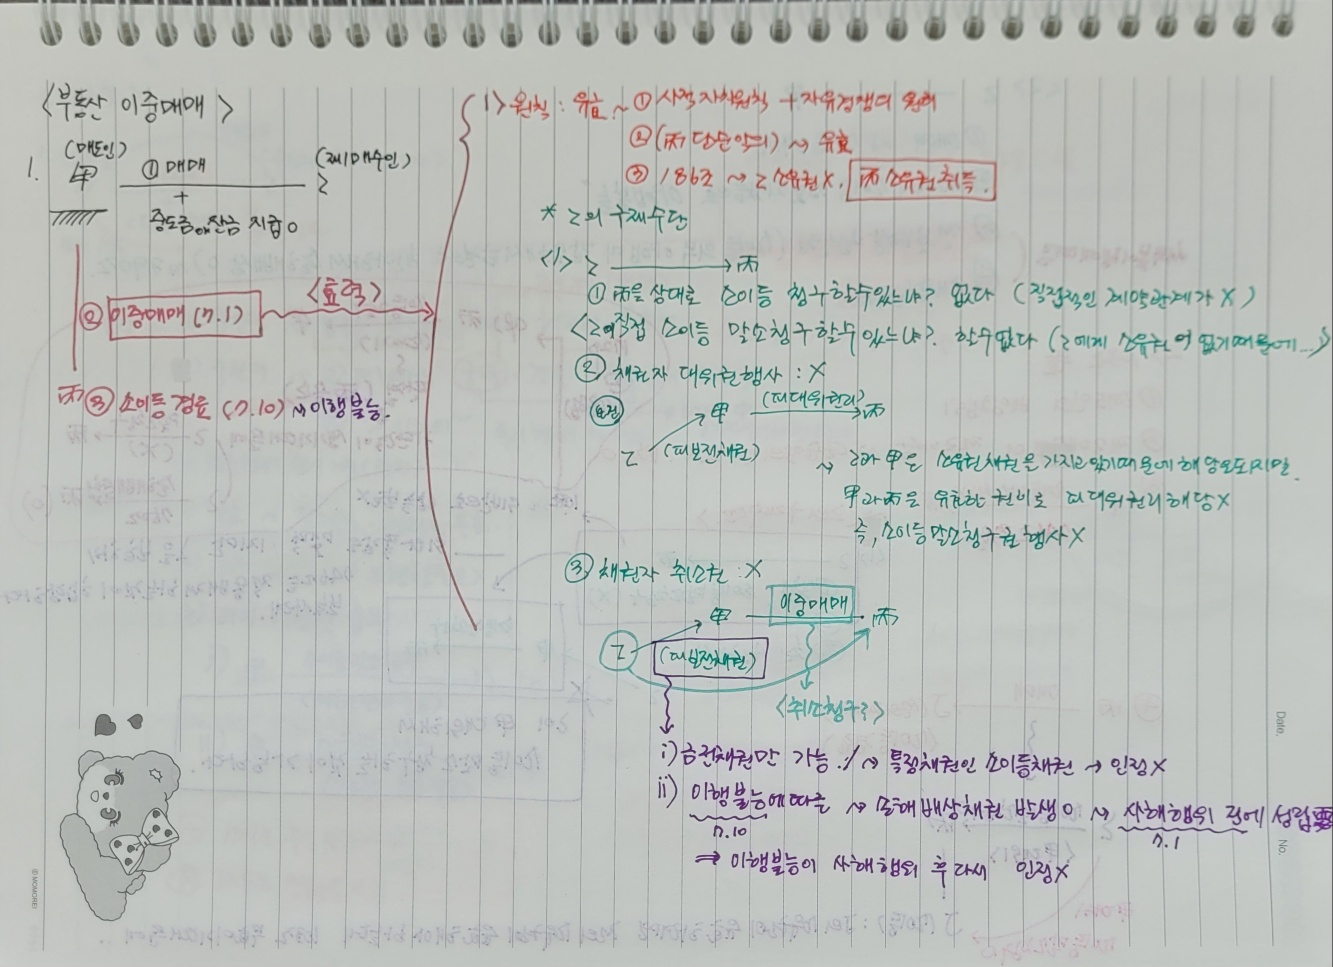 <부동산 이중매매>
1.
(매도인)
甲
① 매매
(제1매수인)
乙
+
중도금 or 잔금 지급 o
② 이중매매 (7.1)
<효력>
丙 ③ 소이등 경료 (7.10) → 이행불능.
1) 원칙 : 유효 ~ ① 사적자치원칙 + 자유경쟁의 원리
② (丙 단순악의) → 유효
③ 186조 → 乙 소유권 X, 丙 소유권 취득.
* 乙의 구제수단
<1> 乙 → 丙
① 丙을 상대로 소이등 청구할수있느냐? 없다 (직접적인 계약관계가 X)
<乙이 직접 소이등 말소청구할수있느냐? 할수없다 (乙에게 소유권이 없기때문에...)>
② 채권자 대위권행사 : X
요건
甲 (피대위권리) 丙
乙 (피보전채권)
→ 乙과 甲은 소유권채권은 가지고있기때문에 해당요도지만
甲과 丙은 유효한 권리로 피대위권리해당X
즉, 소이등말소청구권 행사X
③ 채권자 취소권 : X
甲 이중매매 丙
乙
(피보전채권)
<취소청구>
i) 금전채권만 가능. // → 특정채권인 소이등채권 → 인정X
ii) 이행불능에따른 → 손해배상채권 발생 o → 사해행위 전에 성립
7.10
7.1
⇒ 이행불능이 사해행위 후 다시 인정X
Date.
No.
© MOMOREI